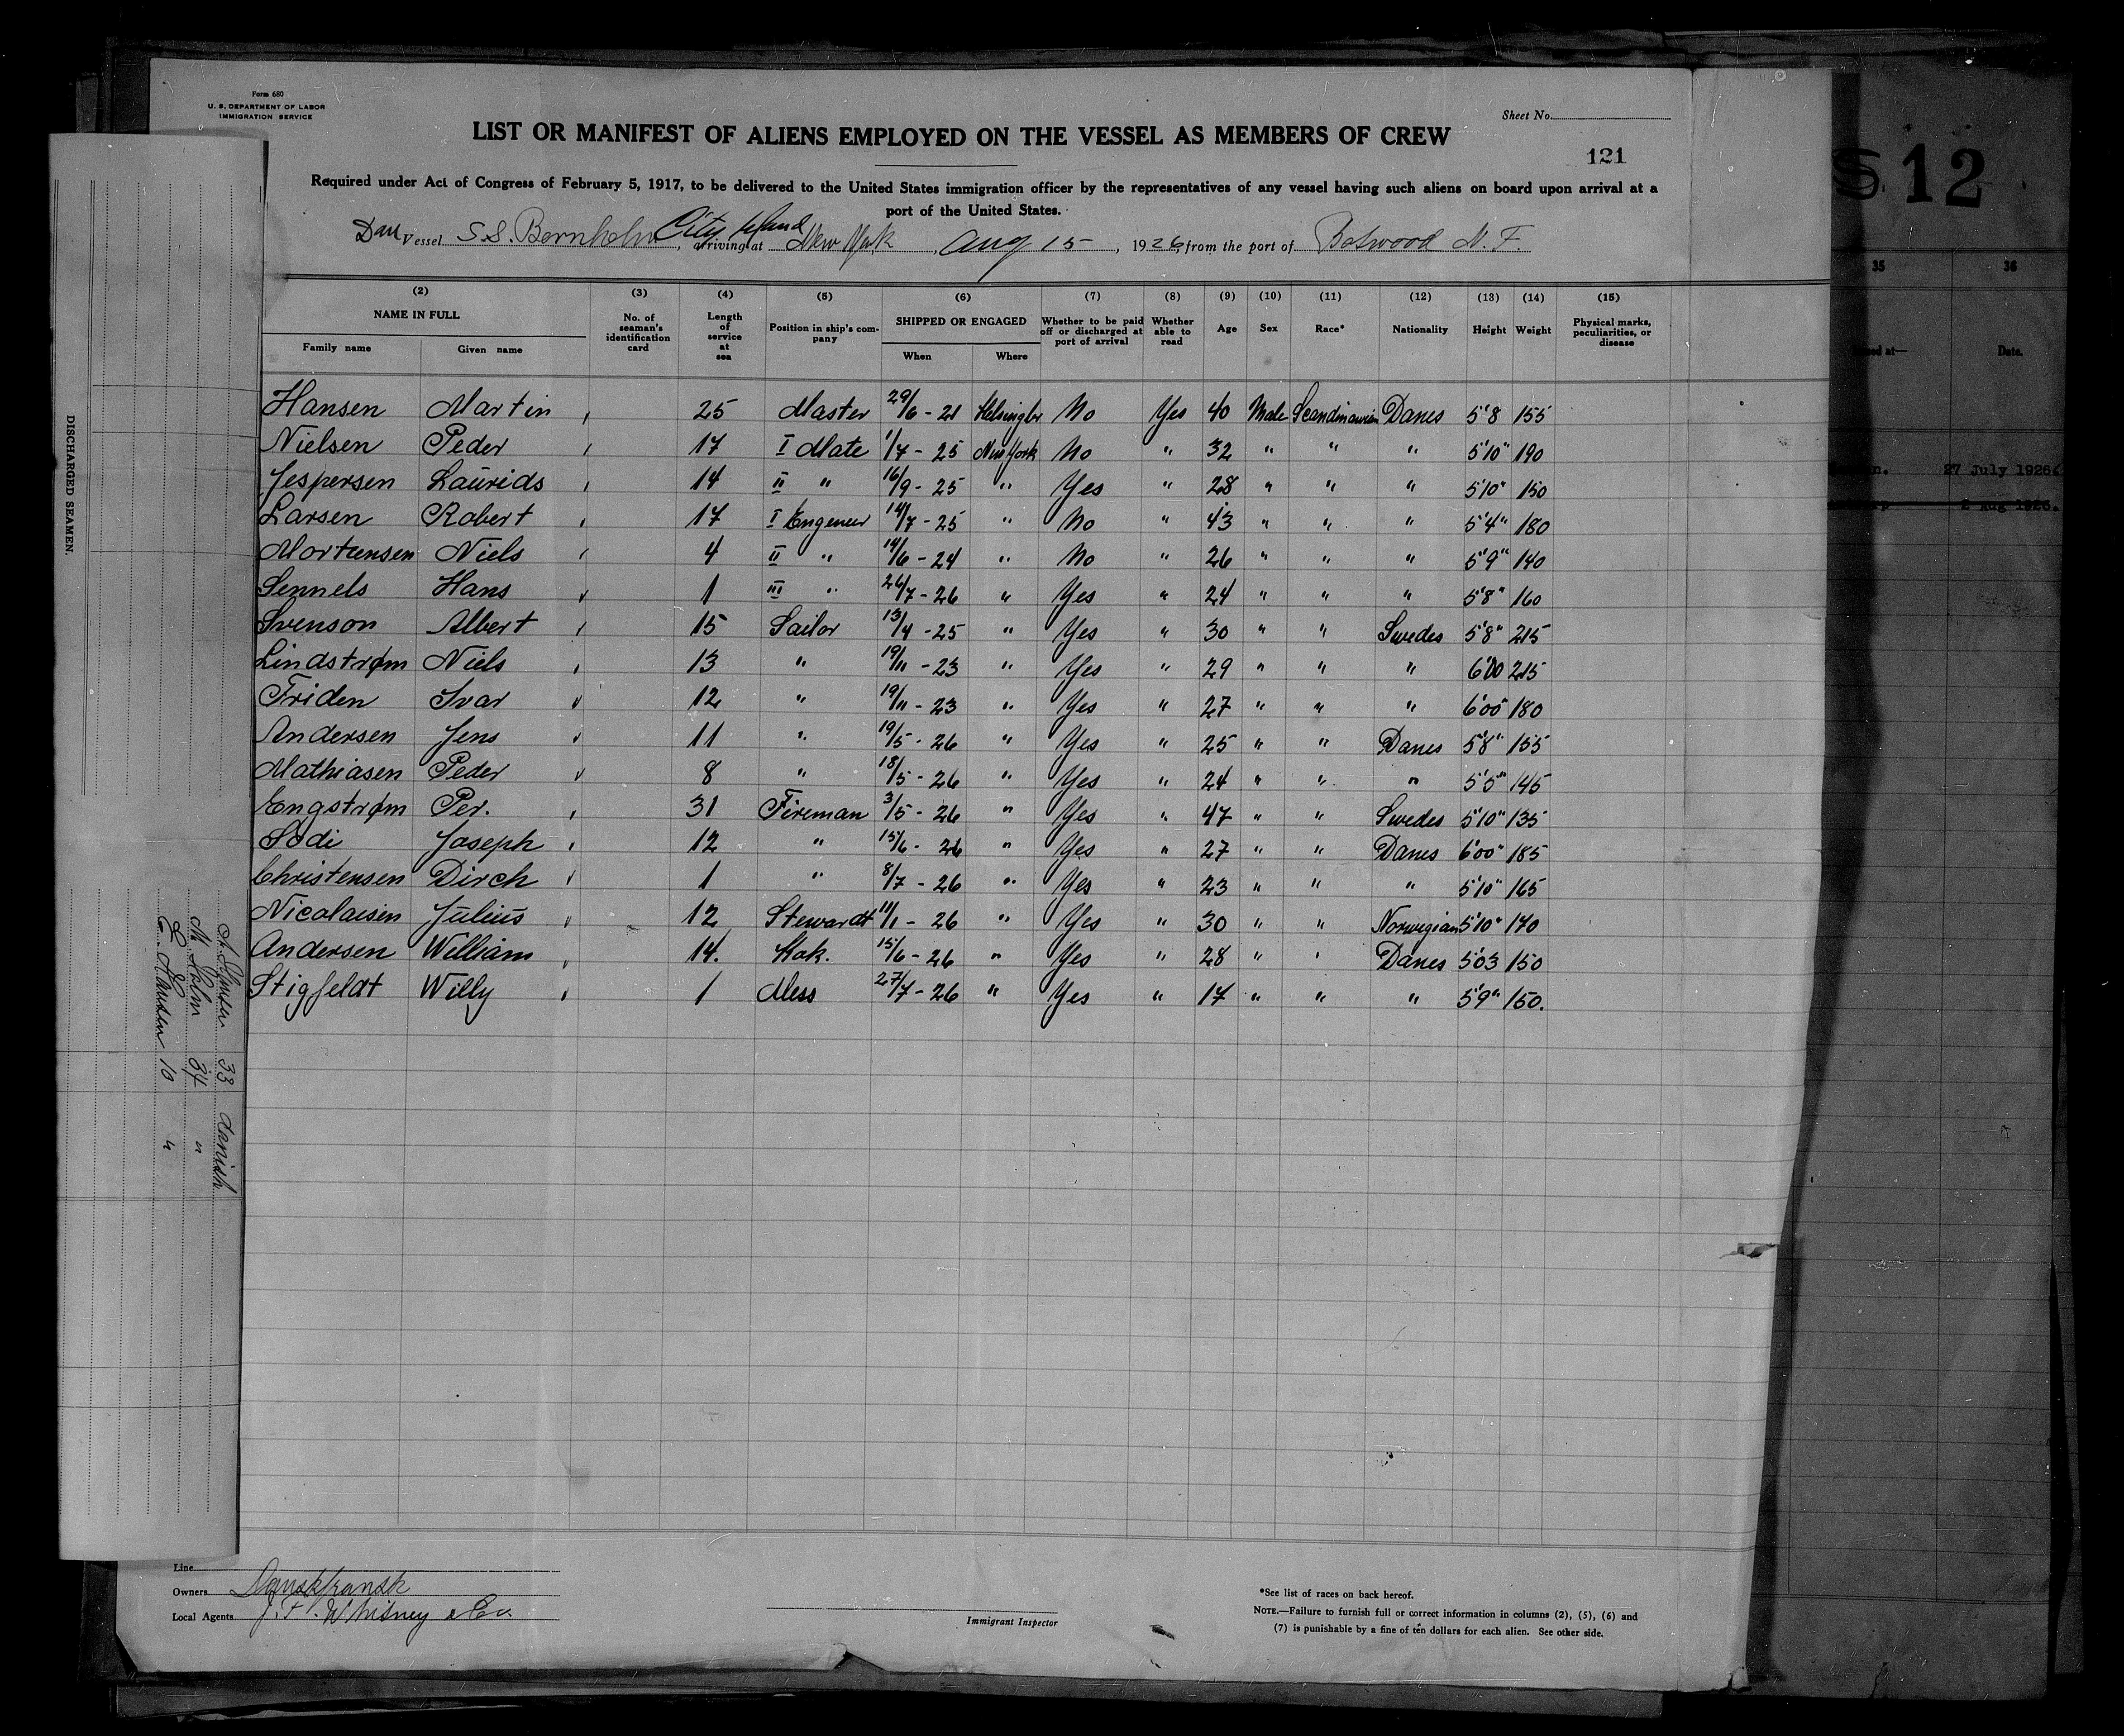 Form 680
U. S. DEPARTMENT OF LABOR
IMMIGRATION SERVICE
Sheet No.
LIST OR MANIFEST OF ALIENS EMPLOYED ON THE VESSEL AS MEMBERS OF CREW
121
Required under Act of Congress of February 5, 1917, to be delivered to the United States immigration officer by the representatives of any vessel having such aliens on board upon arrival at a
port of the United States.
Dan Vessel S.S. Bornholm, arriving at City Island New York, Aug 15, 1926, from the port of Botwood N. F.
(2) (3) (4) (5) (6) (7) (8) (9) (10) (11) (12) (13) (14) (15)
NAME IN FULL No. of seaman's identification card Length of service at sea Position in ship's company SHIPPED OR ENGAGED Whether to be paid off or discharged at port of arrival Whether able to read Age Sex Race* Nationality Height Weight Physical marks, peculiarities, or disease
Family name Given name When Where
Hansen Martin 25 Master 29/6 - 21 Helsingör No Yes 40 Male Scandinavian Danes 5'8 155
Nielsen Peder 17 I Mate 1/7 - 25 New York No " 32 " " " 5'10" 190
Jespersen Laurids 14 II " 16/9 - 25 " Yes " 28 " " " 5'10" 150
Larsen Robert 17 I Engeneer 14/7 - 25 " No " 43 " " " 5'4" 180
Mortensen Niels 4 II " 14/6 - 24 " No " 26 " " " 5'9" 140
Sennels Hans 1 III " 26/7 - 26 " Yes " 24 " " " 5'8" 160
Svenson Albert 15 Sailor 13/4 - 25 " Yes " 30 " " Swedes 5'8" 215
Lindstrøm Niels 13 " 19/11 - 23 " Yes " 29 " " " 6'00 215
Friden Ivar 12 " 19/11 - 23 " Yes " 27 " " " 6'00" 180
Andersen Jens 11 " 19/5 - 26 " Yes " 25 " " Danes 5'8" 155
Mathiasen Peder 8 " 18/5 - 26 " Yes " 24 " " " 5'5" 145
Engstrøm Per. 31 Fireman 3/5 - 26 " Yes " 47 " " Swedes 5'10" 135
Sodi Joseph 12 " 15/6 - 26 " Yes " 27 " " Danes 6'00" 185
Christensen Dirch 1 " 8/7 - 26 " Yes " 23 " " " 5'10" 165
Nicolaisen Julius 12 Stewardt 11/1 - 26 " Yes " 30 " " Norwegian 5'10" 170
Andersen William 14. Kok. 15/6 - 26 " Yes " 28 " " Danes 5'03 150
Stigfeldt Willy 1 Mess 27/7 - 26 " Yes " 17 " " " 5'9" 150.
DISCHARGED SEAMEN.
33 danish
M. Holm 34 "
Hansen 10 "
Line
Owners Danskfransk
Local Agents J. F. Whitney & Co.
Immigrant Inspector
*See list of races on back hereof.
NOTE.—Failure to furnish full or correct information in columns (2), (5), (6) and
(7) is punishable by a fine of ten dollars for each alien. See other side.
S 12
35 36
Date.
27 July 1926
2 Aug 1926.